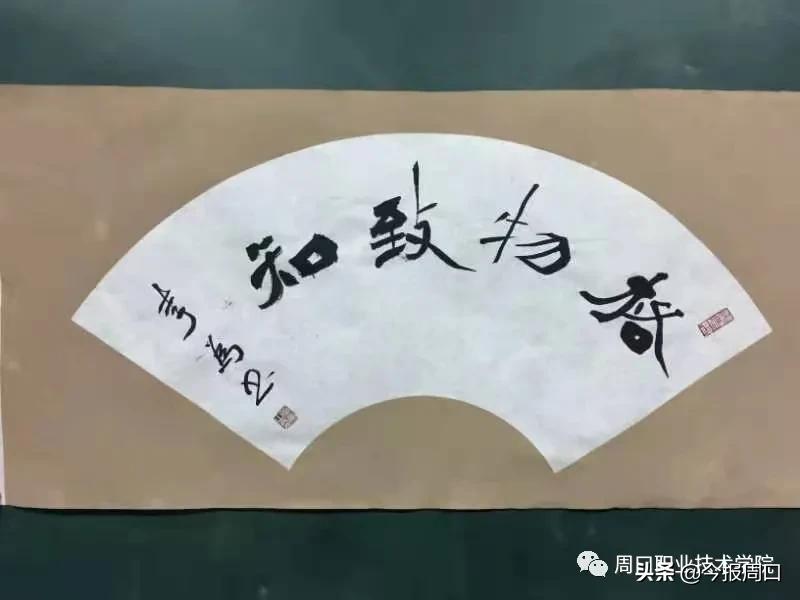 格物致知
周口职业技术学院
头条 @今报周口